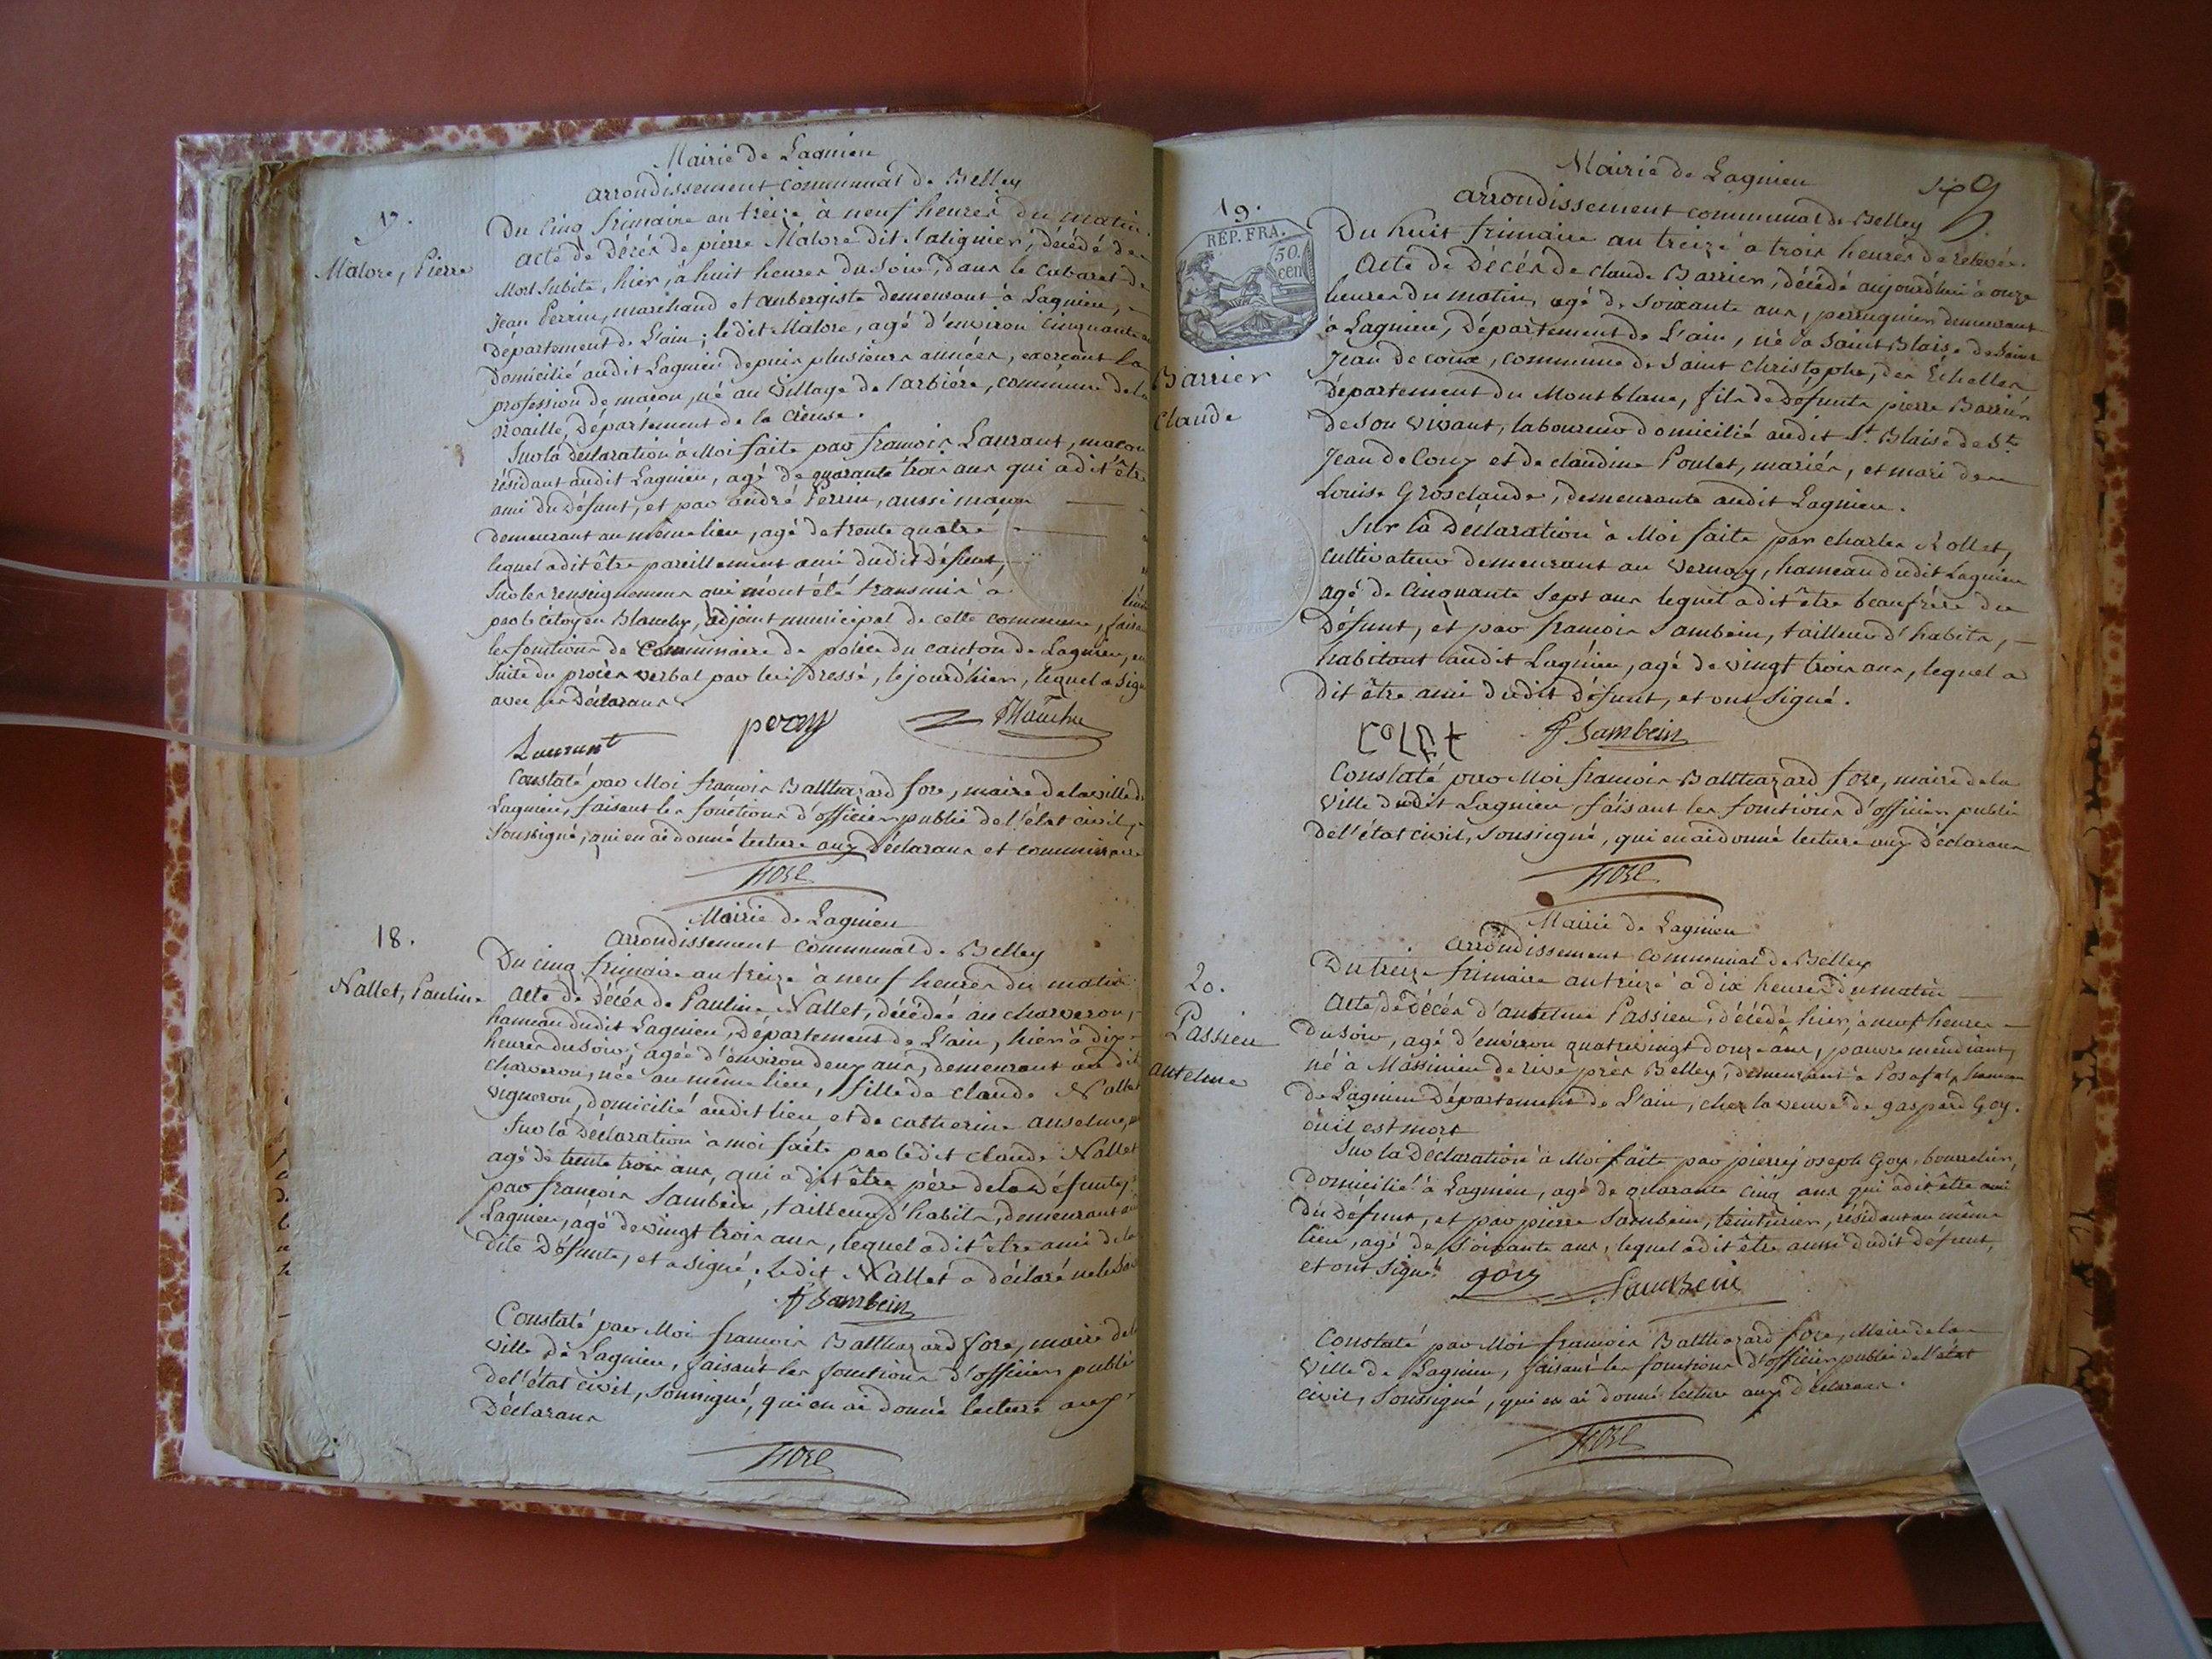 Mairie de Lagnieu
arrondissement communal de Belley
17.
Malore, Pierre
Du cinq frimaire an treize à neuf heures du matin.
acte de décès de pierre Malore dit Salignier, décédé de
Mort Subite, hier, à huit heures du soir, dans le cabaret de
Jean Perrin, marchand et aubergiste demeurant à Lagnieu,
département de L'ain; ledit Malore, agé d'environ cinquante
domicilié audit Lagnieu depuis plusieurs années, exerçant la
profession de maçon, né au village de Larbiére, commune de la
département de la Creuse.
Sur la déclaration à Moi faite par françois Laurant, maçon
résidant audit Lagnieu, agé de quarante trois ans qui a dit être
ami du défunt, et par andré Perrin, aussi maçon
demeurant au même lieu, agé de trente quatre
lequel a dit être pareillement ami dudit défunt,
Sur les renseignemens qui m'ont été transmis à
par le citoyen Blanchy, adjoint municipal de cette commune,
les fonctions de Commissaire de police du canton de Lagnieu, en
suite du procès verbal par lui dressé, le jourd'hier, lequel a
avec les Déclarans
Laurant perin
Constaté par Moi françois Balthazard fore, maire de la ville de
Lagnieu, faisant les fonctions d'officier public de l'état civil,
soussigné, qui en ai donné lecture aux Déclarans et commissaire
Fore
Mairie de Lagnieu
arrondissement communal de Belley
18.
Nallet, Pauline
Du cinq frimaire an treize à neuf heures du matin
acte de décès de Pauline Nallet, décédée au charveron,
hameau dudit Lagnieu, Département de L'ain, hier à dix
heures du soir, agée d'environ deux ans, demeurant au dit
charveron, née au même lieu, fille de claude Nallet
vigneron, domicilié audit lieu, et de catherine anselme,
Sur la Déclaration à moi faite par ledit claude Nallet
agé de trente trois ans, qui a dit être père de la défunte,
par françois Sambein, tailleur d'habits, demeurant
Lagnieu, agé de vingt trois ans, lequel a dit être ami de la
dite défunte, et a signé; ledit Nallet a déclaré ne le
f Sambein
Constaté par Moi françois Balthazard fore, maire de la
ville de Lagnieu, faisant les fonctions d'officier public
de l'état civil, soussigné, qui en ai donné lecture aux
Déclarans
Fore
Mairie de Lagnieu
arrondissement communal de Belley
19.
REP. FRA.
50.
cen
Barrier
Claude
Du huit frimaire an treize à trois heures de relevée.
Acte de Décès de claude Barrier, décédé aujourd'hui à onze
heures du matin, agé de soixante ans, perruquier demeurant
à Lagnieu, Département de L'ain, né à Saint Blaise de Saint
Jean de coux, commune de Saint christophe, des Echelles
Département du Montblanc, fils de défunts pierre Barrier
de son vivant, laboureur domicilié audit St Blaise de St
Jean de Couz et de claudine Poulet, mariés, et mari de
Louise Grosclaude, demeurante audit Lagnieu.
Sur la déclaration à Moi faite par charles Rollet,
cultivateur demeurant au Vernay, hameau dudit Lagnieu
agé de Cinquante Sept ans lequel a dit être beaufrère du
défunt, et par françois Sambein, tailleur d'habits,
habitant audit Lagnieu, agé de vingt trois ans, lequel a
dit être ami dudit défunt, et ont signé.
f Sambein
Constaté par Moi françois Balthazard fore, maire de la
ville dudit Lagnieu, faisant les fonctions d'officier public
de l'état civil, soussigné, qui en ai donné lecture aux déclarans
Fore
Mairie de Lagnieu
arrondissement communal de Belley
20.
Passieu
antelme
Du treize frimaire an treize à dix heures du matin
Acte de Décès d'antelme Passieu, décédé hier, à neuf heures
du soir, agé d'environ quatrevingt douze ans, pauvre mendiant,
né à Massinieu de rive près Belley, demeurant à Posafol, hameau
de Lagnieu Département de L'ain, chez la veuve de gaspard Goy.
où il est mort
Sur la déclaration à Moi faite par pierre joseph Goy, bourrelier,
domicilié à Lagnieu, agé de quarante cinq ans qui a dit être ami
du défunt, et par pierre Sambein, teinturier, résidant au même
lieu, agé de Soixante ans, lequel a dit être aussi dudit défunt,
et ont signé. goy Sambein
Constaté par Moi françois Balthazard fore, Maire de la
ville de Lagnieu, faisant les fonctions d'officier public de l'état
civil, soussigné, qui en ai donné lecture aux déclarans.
Fore